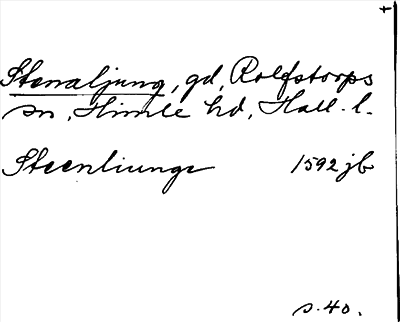 Stenaljung, gd, Rolfstorps
sn, Himle hd, Hall. l.
Steenliunge 1592 jb
s. 40.